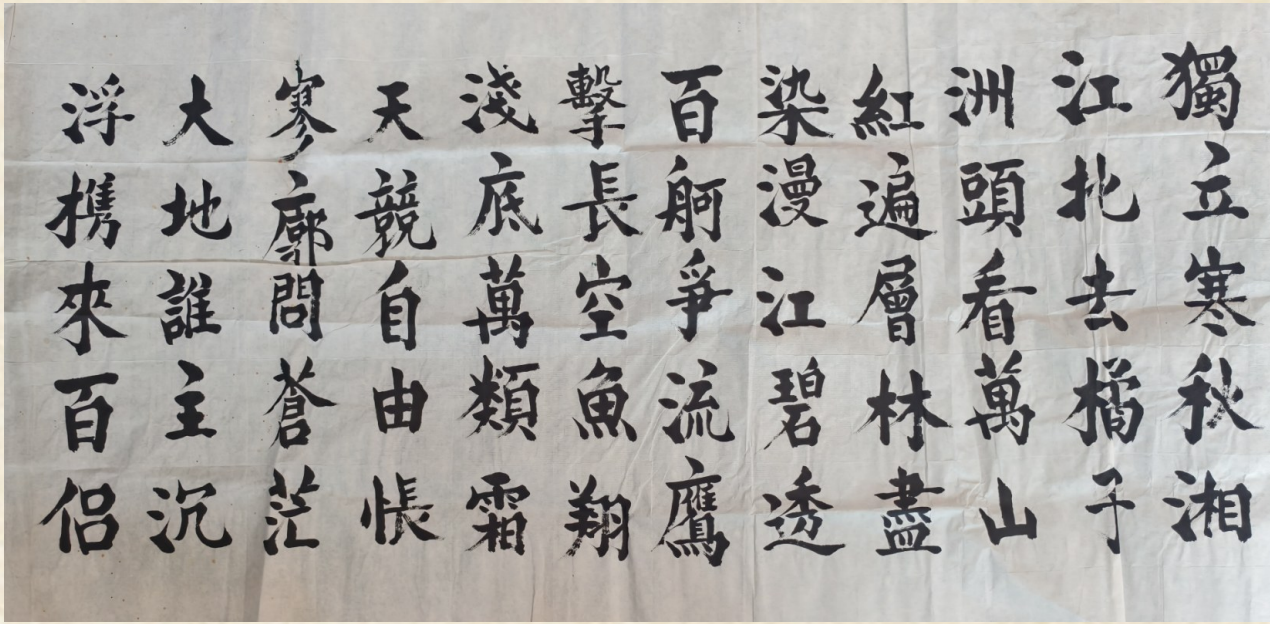 獨立寒秋湘
江北去橘子
洲頭看萬山
紅遍層林盡
染漫江碧透
百舸爭流鷹
擊長空魚翔
淺底萬類霜
天競自由悵
寥廓問蒼茫
大地誰主沉
浮攜來百侶